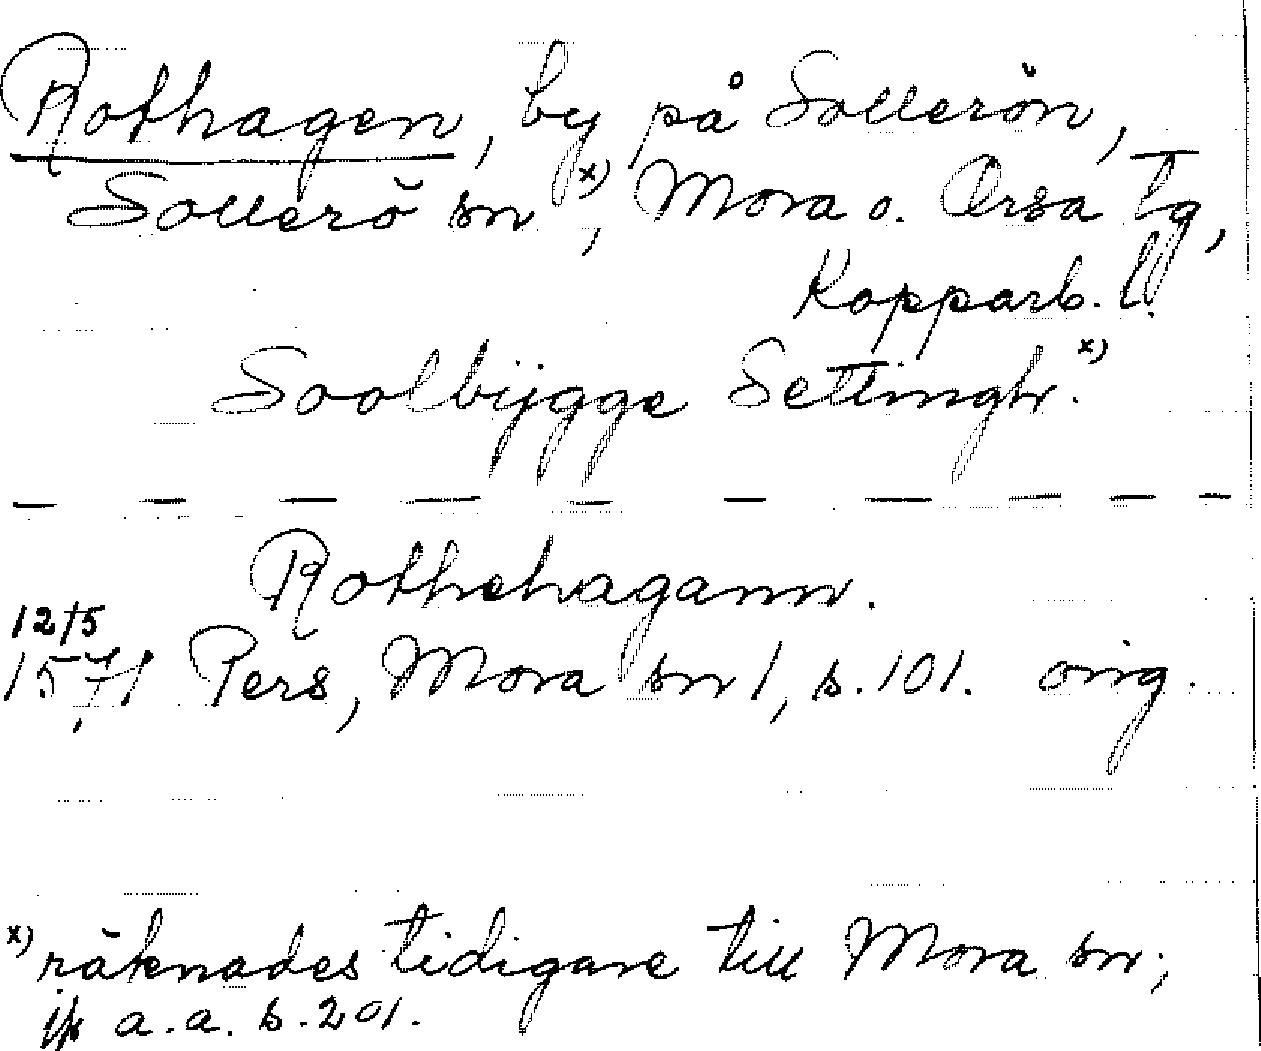 Rothagen, by på Sollerön,
Sollerö sn x), Mora o. Orsa tg,
Kopparb. l.
Soolbijgge Settingh. x)
Rothehagann.
12/5
1571 Pers, Mora sn 1, s. 101. orig.
x) räknades tidigare till Mora sn;
jfr a.a. s. 201.